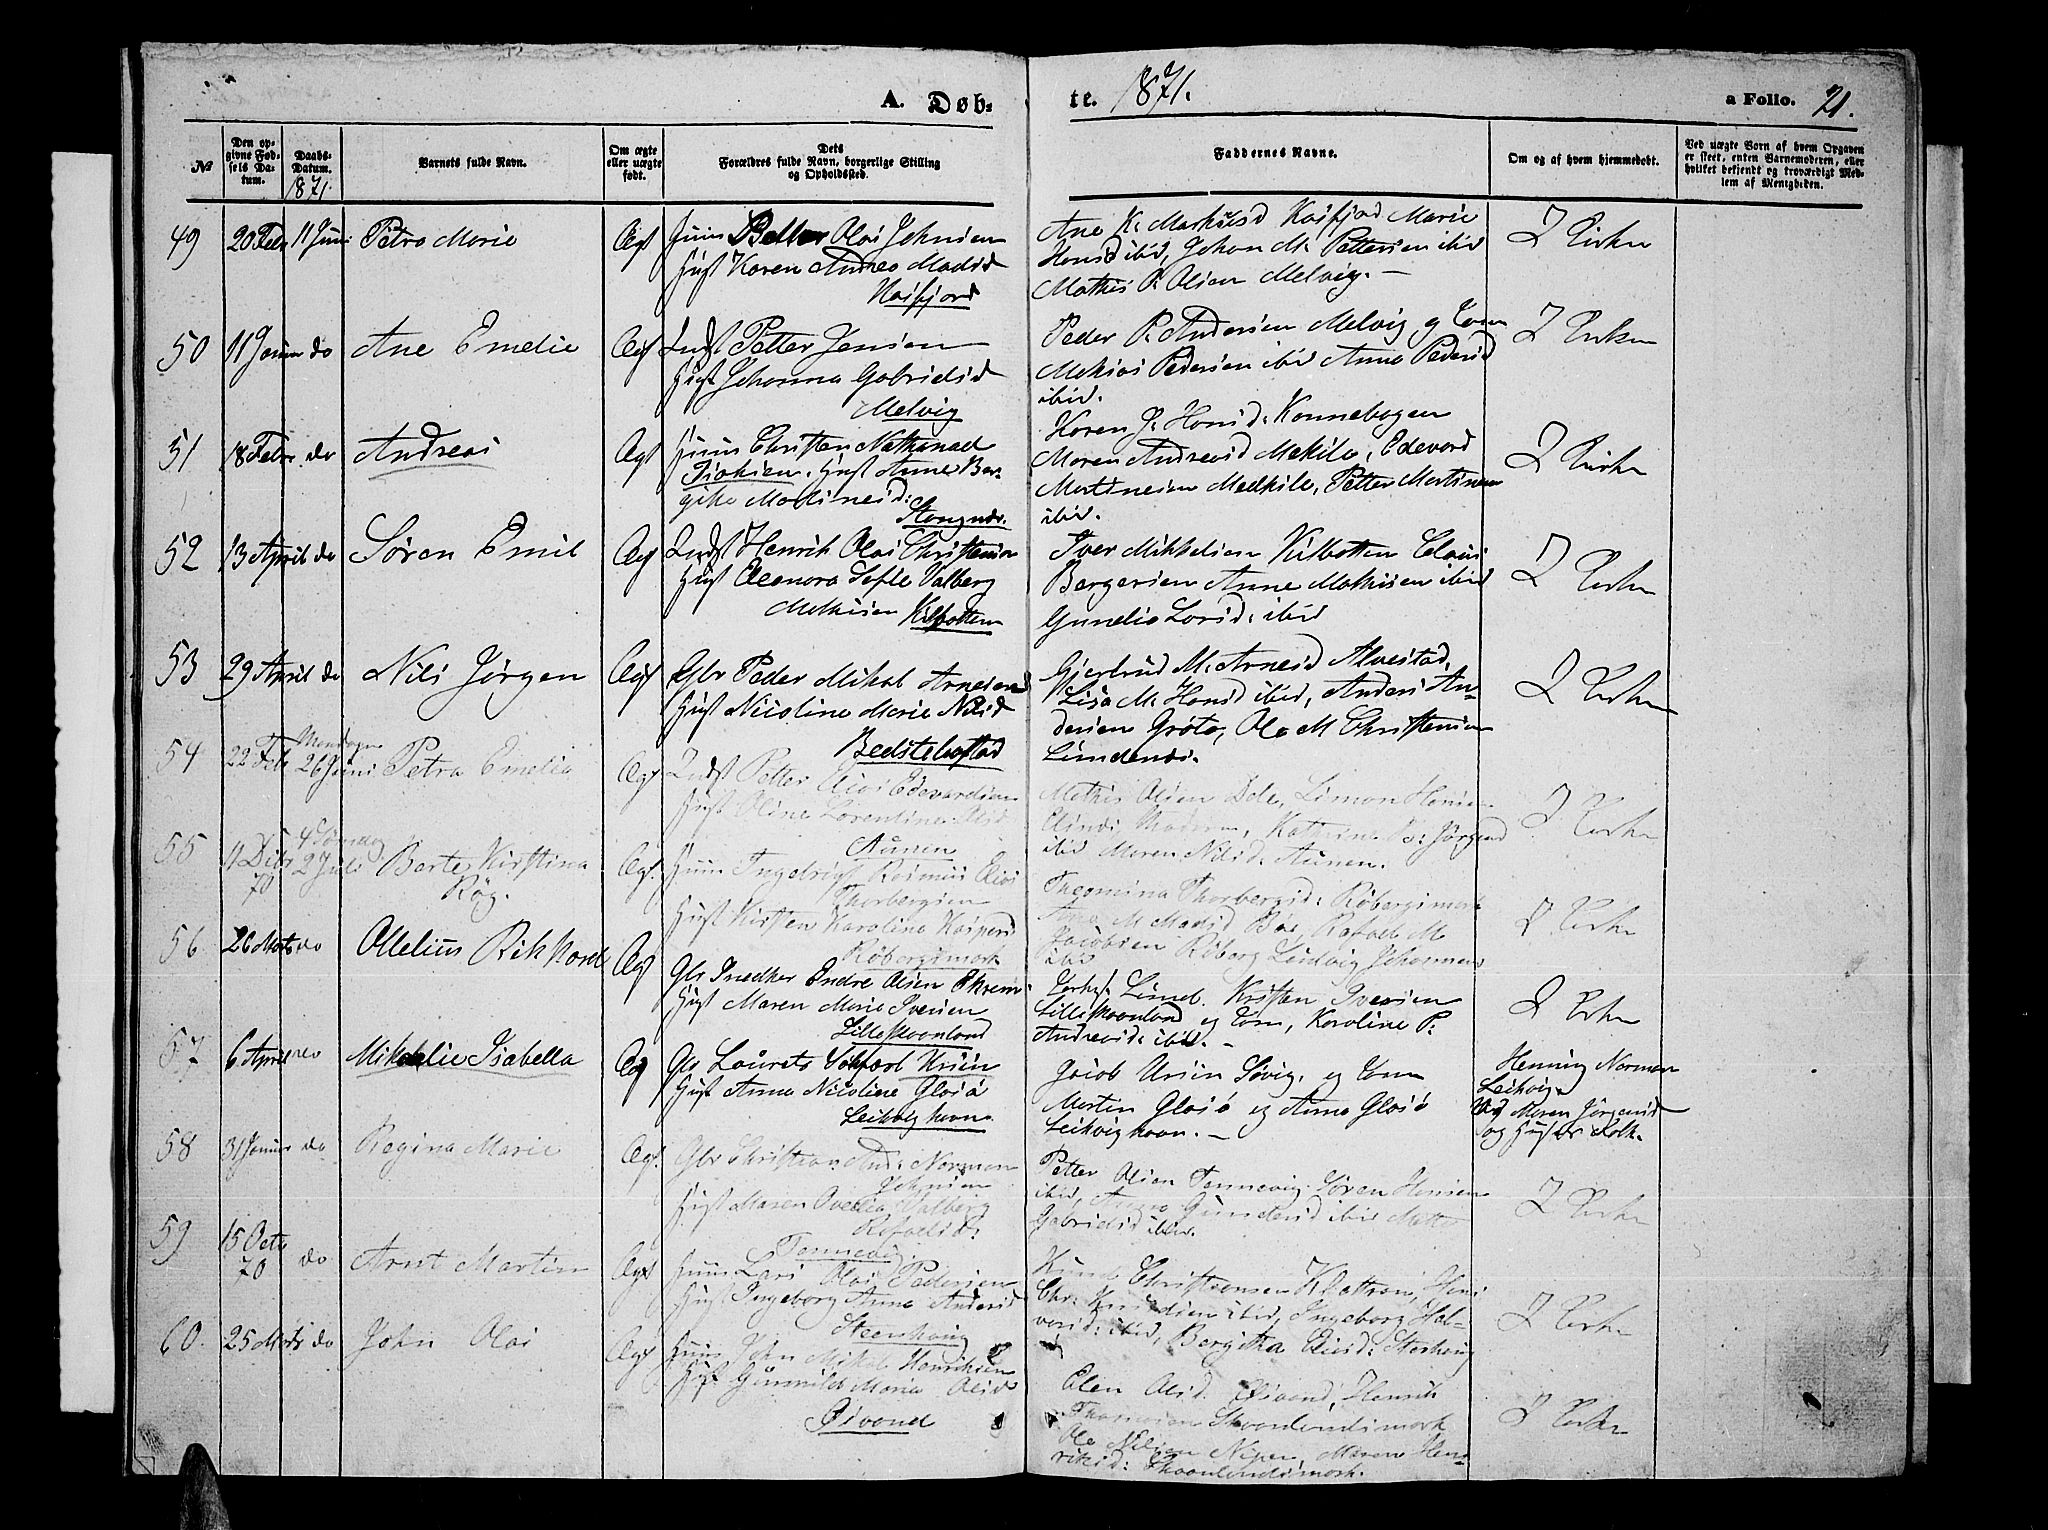 A. Døb-
te. 1871.
a Folio. 21.
№
Den op-
givne Fød-
sels Da-
tum.
Daabs-
Datum.
1871.
Barnets fulde Navn.
Om ægte
eller uægte
født.
Dets
Forældres fulde Navn, borgerlige Stilling
og Opholdssted.
Faddernes Navne.
Om og af hvem hjemmedøbt.
Ved uægte Børn af hvem Opgaven
er skeet, enten Barnemoderen, eller
hvilket bekjendt og troværdigt Med-
lem af Menigheden.
49 20 Febr 11 Juni Petra Marie Ægt Huus Petter Olai Johnsen
Hust Karen Andrea Madsd
Kasfjord
Ane K. Markusd Kasfjord Marie
Hansd ibid, Johan M. Pettersen ibid
Mathis P. Olsen Melvig. —
I Kirken
50 11 Januar do Ane Emelie Ægt Indst Petter Jensen
Hust Johanna Gabrielsd
Melvig
Peder P. Andersen Melvig og Kone
Mekias Pedersen ibid Anne Pedersd
ibid.
I Kirken
51 18 Febr. do Andreas Ægt Huus Christen Nathanael
Hust Anne Ber-
githa Martinesd:
Stangnæs.
Karen J. Hansd: Konnebogen
Maren Andreasd Mekile, Edevard
Martinesen Medkile, Petter Martinesen
ibid.
I Kirke
52 13 April do Søren Emil Ægt Indst Henrik Olai Christensen
Hust Eleonora Sofie Valberg
Mathisen Kilbotten
Iver Mikkelsen Kilbotten Claus
Bergersen Anne Mathisen ibid
Gunelia Larsd: ibid
I Kirke
53 29 April do Nils Jørgen Ægt Gbr Peder Mikal Arnesen
Hust Nicoline Marie Nilsd
Bedstebostad
Gjertrud M. Arnesd Alvestad,
Lisa M. Hansd ibid, Anders An-
dersen Grøtø, Ole M Christensen
Sundenæs.
I Kirke
54 22 Feb Mandagen
26 Juni Petra Emelia Ægt. Indst Petter Elias Edevardsen
Hust Oline Lorentine Nilsd
Aunen
Mathis Olsen Dale, Simon Hansen
ibid Maren Nilsd: Aunen.
I Kirke
55 11 Dcbr
70 4 Søndag
2 Juli Berte Kirstina
Røg. Ægt. Huus Ingebrigt Rasmus Elias
Thorbergsen
Hust Kirsten Karolina Kaspersd
Røbergsmark
Thomina Thorbergsd: Røbergsmark
Ana M Madsd Bøe, Rafael M
Jacobsen Røberg Ludvig Johannes
ibid
I Kirke
56 26 Marts do Ollelius Rikkard Ægt Gbr Snedker Endre Olsen
Hust Maren Marie Iversen
Lilleskaanland
Kirks. Lund. Kristen Iversen
Lilleskaanland og Kone, Karoline P.
Andreasd: ibid. —
I Kirke
57 6 April do Mikalie Isabella Ægt Gbr Laurets Ursin
Hust Anna Nicoline Glasø
Leikvighavn
Jacob Ursin Søvig, og Kone
Martin Glasø og Anna Glasø
Leikvighavn. —
Henning Norman
Leikvig
Ved Maren Jørgensd
og Huses Folk.
58 31 Januar do Regina Marie Ægt. Gbr Christian And: Norman
Johnsen
Hust Maren Ovedia Valberg
Rafaelsd:
Tennevig.
Petter Olsen Tennevig. Søren Hansen
ibid, Anne Gundersd ibid Mette
Gabrielsd ibid.
I Kirke
59 15 Octr
70 do Arnt Martin Ægt Huus Lars Olai Pedersen
Hust Ingeborg Anna Andersd
Steenhaug
Knud Christiansen Klattran, Hans
Chr. Knudsen ibid, Ingeborg Hal-
vorsd: ibid, Bergitha Eliasd: Storhaug
I Kirke
60. 25 Marts do John Olai Ægt Huus John Mikal Henriksen
Hust Gunnild Maria Olsd
Øivand
Elen Olsd. Øivand, Henrik
Thomasen Skaanlandsmark
Ole Nilsen Niper, Maren Hen-
riksd: Skaanlandsmark.
I Kirke